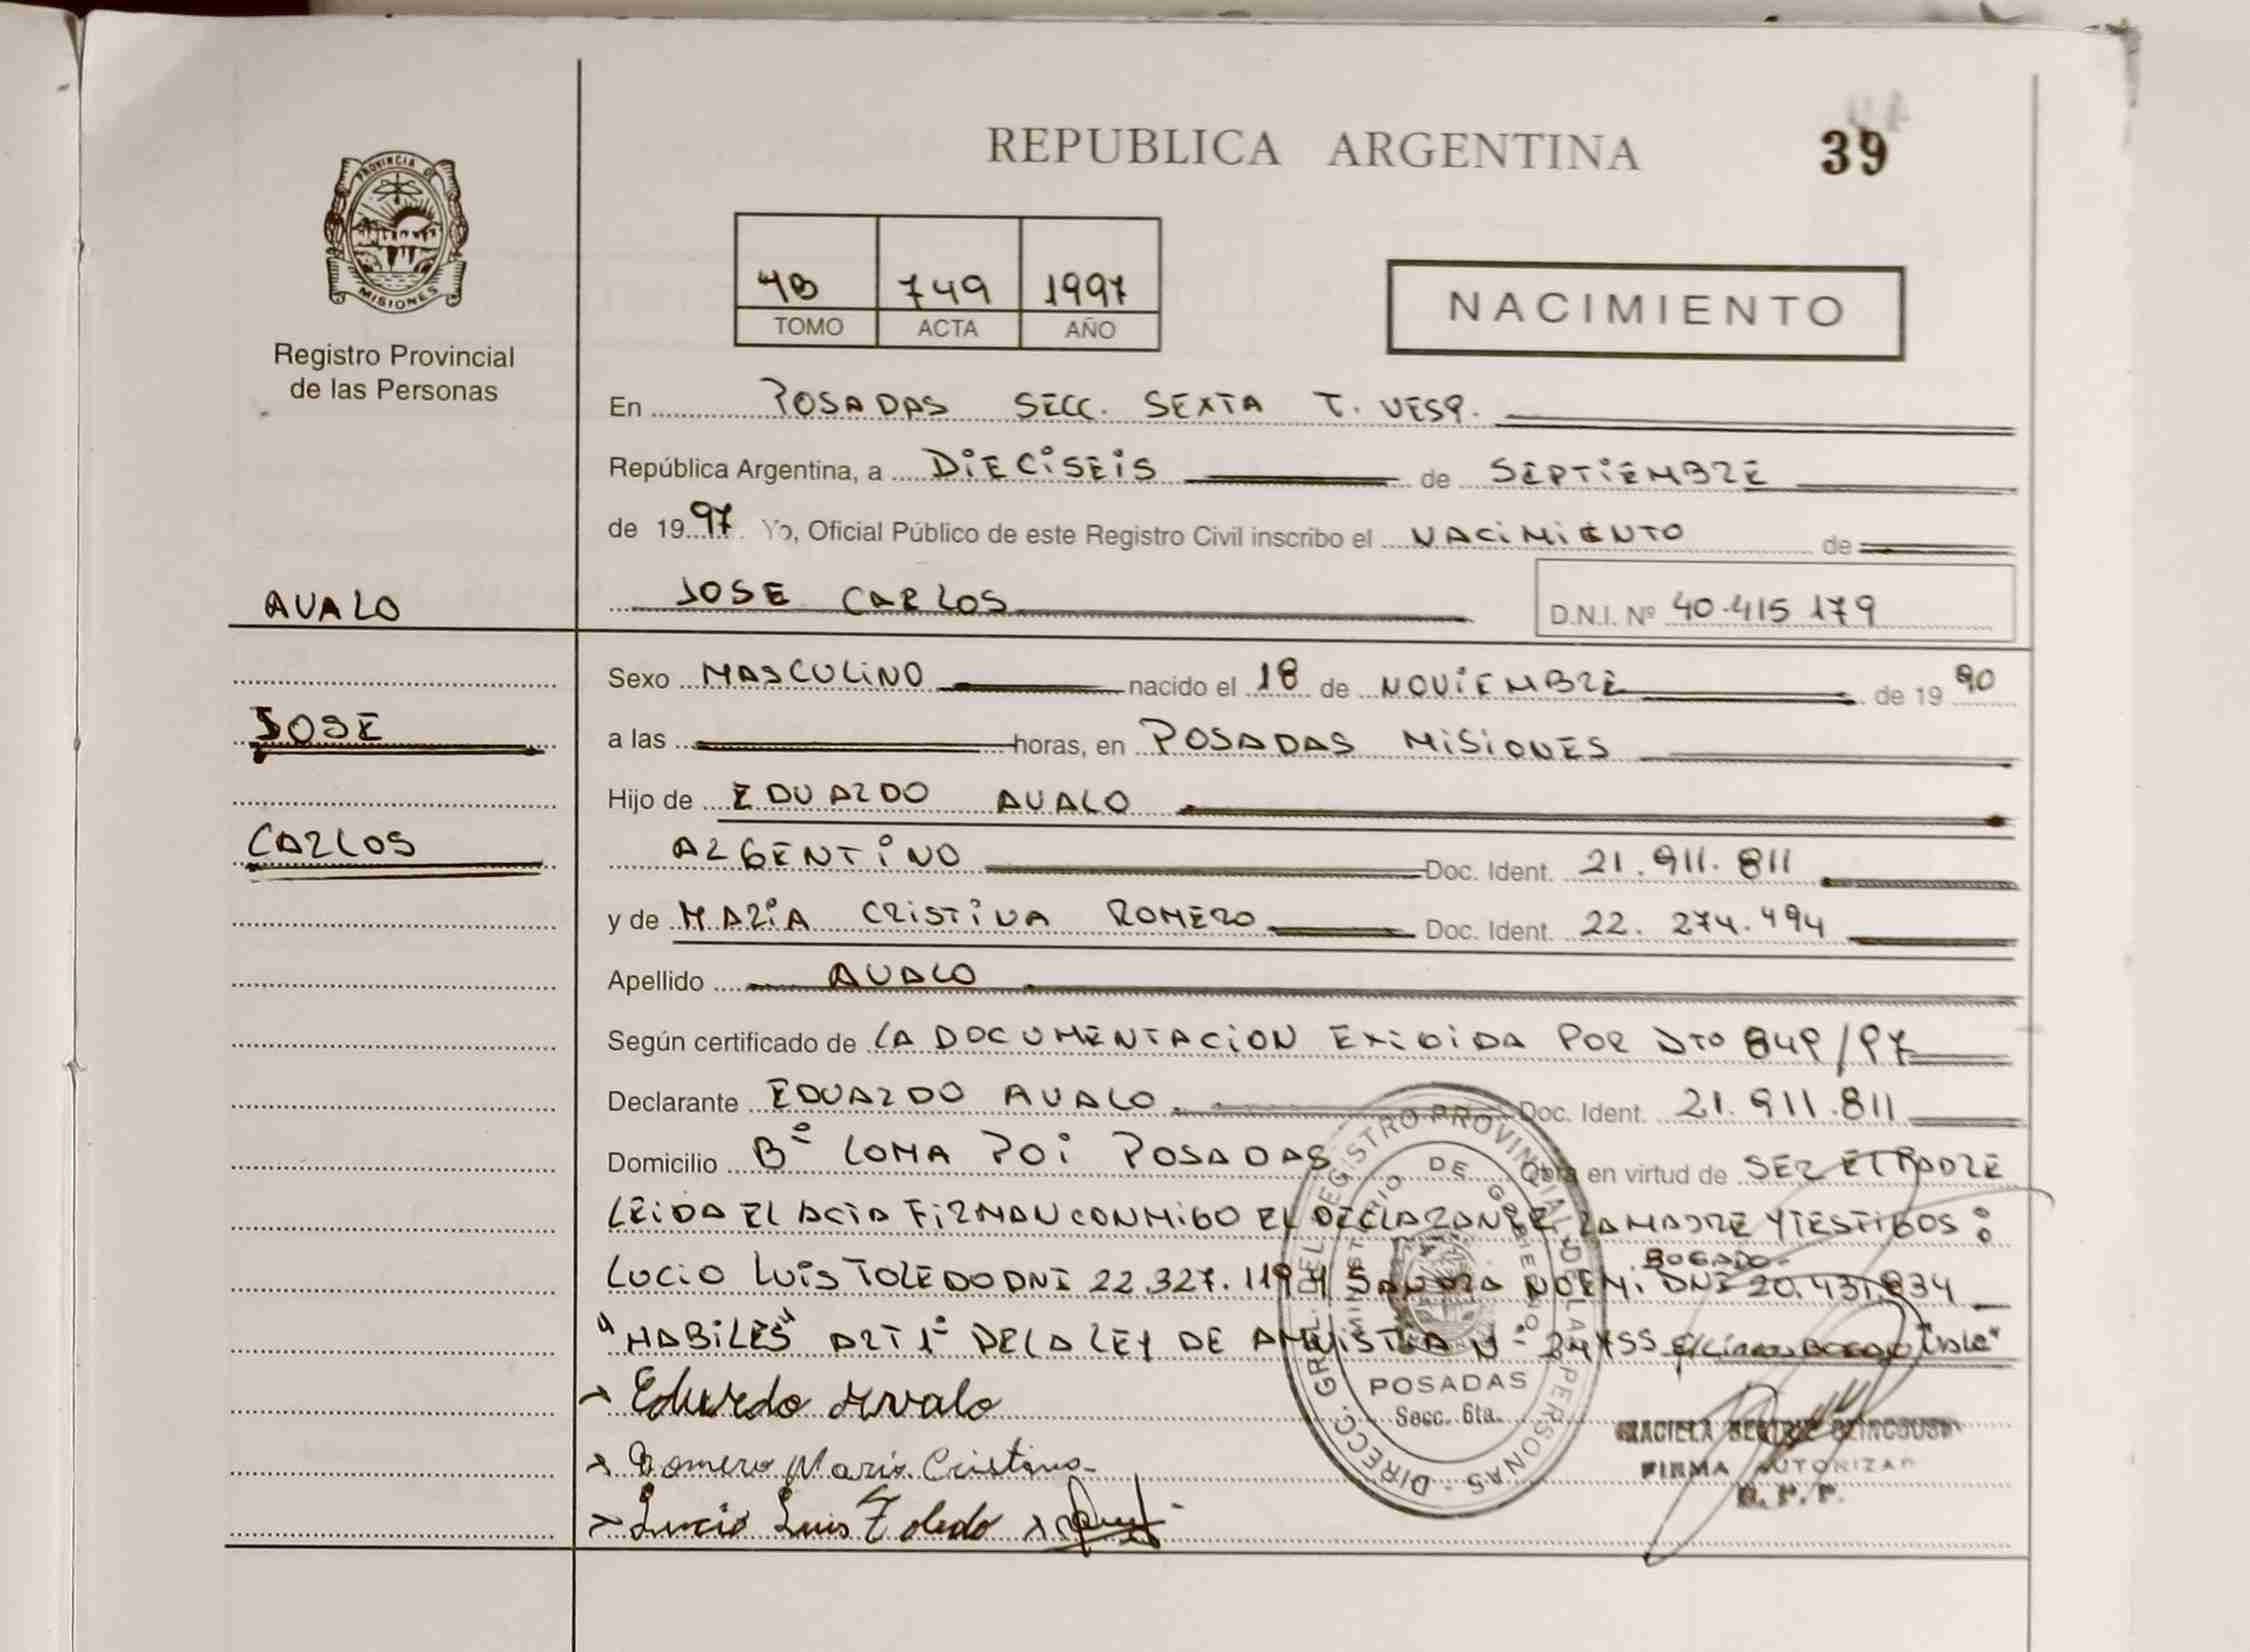 REPUBLICA ARGENTINA
39
PROVINCIA DE
MISIONES
Registro Provincial
de las Personas
4B 749 1997
TOMO ACTA AÑO
NACIMIENTO
En POSADAS SECC. SEXTA T. VESP.
República Argentina, a DIECISEIS de SEPTIEMBRE
de 1997 Yo, Oficial Público de este Registro Civil inscribo el NACIMIENTO de
AVALO
JOSE CARLOS
D.N.I. Nº 40.415 179
Sexo MASCULINO nacido el 18 de NOVIEMBRE de 1990
JOSE
a las horas, en POSADAS MISIONES
Hijo de EDUARDO AVALO
CARLOS
ARGENTINO Doc. Ident. 21.911.811
y de MARIA CRISTINA ROMERO Doc. Ident. 22.274.494
Apellido AVALO
Según certificado de LA DOCUMENTACION EXIBIDA POR DTO 849/97
Declarante EDUARDO AVALO Doc. Ident. 21.911.811
Domicilio Bº LOMA POI POSADAS Obra en virtud de SER EL PADRE
LEIDA EL ACTA FIRMAN CONMIGO EL DECLARANTE LA MADRE Y TESTIGOS:
BOGADO
LUCIO LUIS TOLEDO DNI 22.327.119 Y SANDRA NOEMI DNI
"HABILES" ART 1º DE LA LEY DE AMNISTIA Nº BOGADO "Vale"
Eduardo Avalo
Romero Maria Cristina
Lucio Luis Toledo
DIRECC. GRAL. DEL REGISTRO PROVINCIAL DE LAS PERSONAS
MINISTERIO DE GOBIERNO
POSADAS
Secc. 6ta.
GRACIELA BEATRIZ
FIRMA AUTORIZAD
R. P. P.